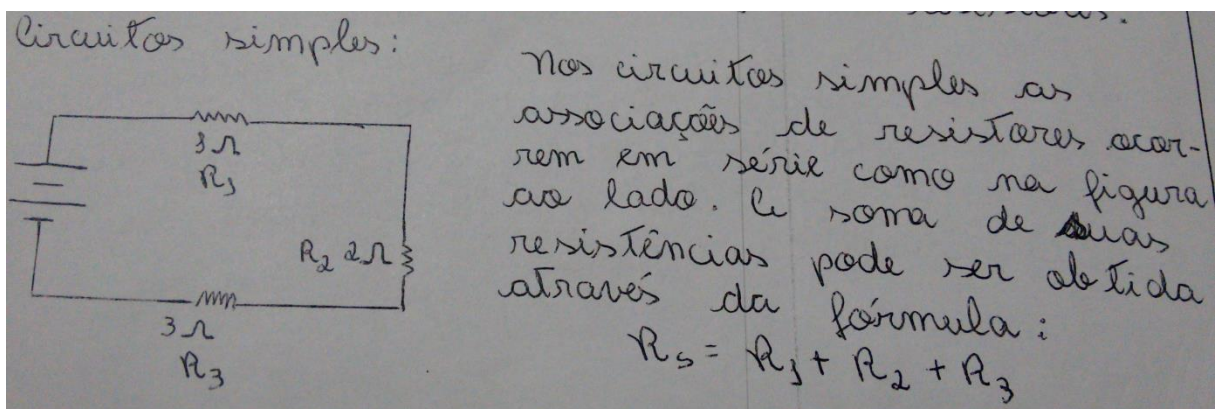 Circuitos simples:
3Ω
R1
R2 2Ω
3Ω
R3
Nos circuitos simples as
associações de resistores ocor-
rem em série como na figura
ao lado. A soma de suas
resistências pode ser obtida
através da fórmula:
Rs = R1 + R2 + R3